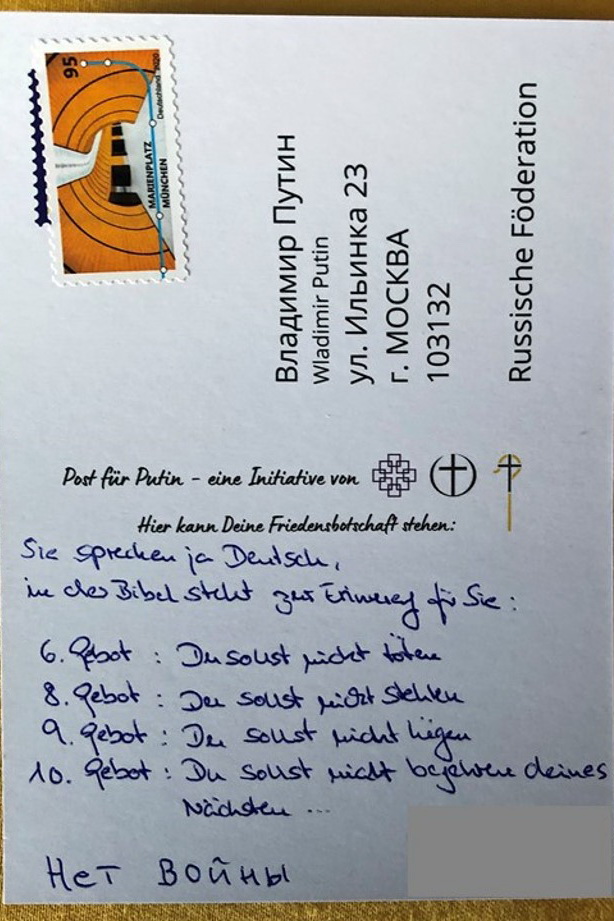 95
Deutschland 2020
MARIENPLATZ
MÜNCHEN
Владимир Путин
Wladimir Putin
ул. Ильинка 23
г. МОСКВА
103132
Russische Föderation
Post für Putin - eine Initiative von
Hier kann Deine Friedensbotschaft stehen:
Sie sprechen ja Deutsch,
in der Bibel steht zur Erinnerung für Sie:
6. Gebot : Du sollst nicht töten
8. Gebot : Du sollst nicht stehlen
9. Gebot : Du sollst nicht lügen
10. Gebot : Du sollst nicht begehren deines
Nächsten ...
Нет войны